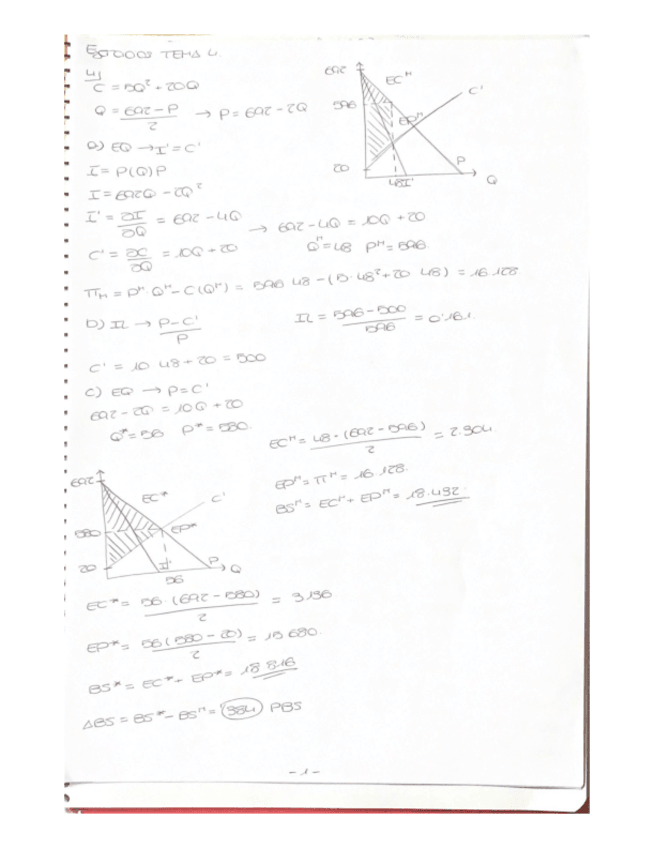 TEMA 4.
4)
C = 5Q² + 20Q
Q = (692-P)/2 → P = 692 - 2Q
a) EQ → I' = C'
I = P(Q)P
I = 692Q - 2Q²
I' = ∂I/∂Q = 692 - 4Q → 692 - 4Q = 10Q + 20
C' = ∂C/∂Q = 10Q + 20
Qᴹ = 48 Pᴹ = 596.
πM = Pᴹ·Qᴹ - C(Qᴹ) = 596·48 - (5·48² + 20·48) = 16.128.
b) IL → (P-C')/P
IL = (596-500)/596 = 0'161.
C' = 10·48 + 20 = 500
c) EQ → P = C'
692 - 2Q = 10Q + 20
Q* = 56 P* = 580.
692
596
20
ECᴹ
EPᴹ
C'
48
I'
P
Q
ECᴹ = 48·(692-596)/2 = 2.304.
EPᴹ = πᴹ = 16.128.
BSᴹ = ECᴹ + EPᴹ = 18.432.
692
580
20
EC*
C'
EP*
I'
P
Q
56
EC* = 56·(692-580)/2 = 3.136
EP* = 56(580-20)/2 = 15.680.
BS* = EC* + EP* = 18.816
ΔBS = BS* - BSᴹ = 384 PBS
-1-